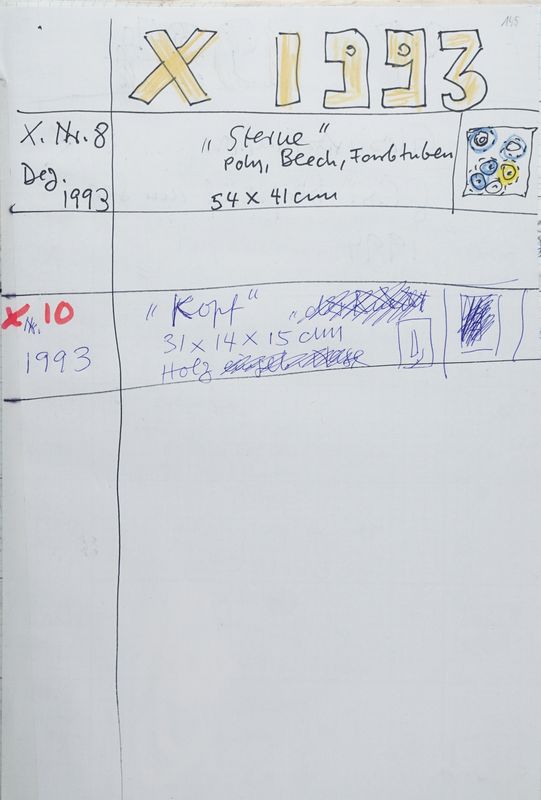 195
X 1993
X. Nr. 8
Dez.
1993
„Sterne"
Poly, Blech, Farbtuben
54 x 41 cm
X Nr. 10
1993
„Kopf"
31 x 14 x 15 cm
Holz